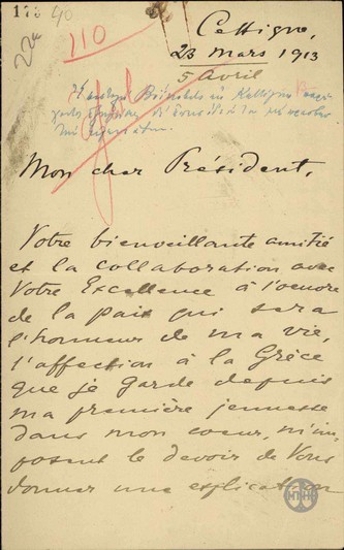 Cettigne,
23 mars 1913
5 avril
110
Mon cher Président.
Votre bienveillante amitié
et la collaboration avec
Votre Excellence à l'oeuvre
de la paix qui sera
l'honneur de ma vie,
l'affection à la Grèce
que je garde depuis
ma première jeunesse
dans mon coeur, m'im-
posent le devoir de Vous
donner une explication